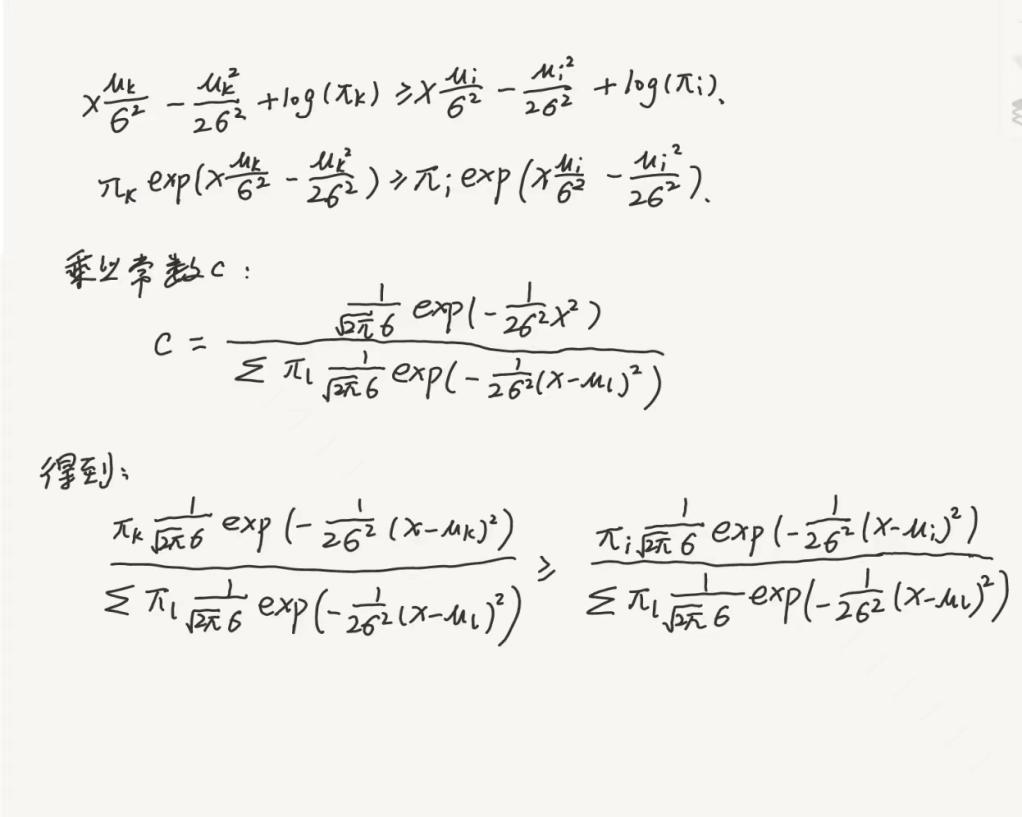 x μₖ/σ² − μₖ²/2σ² + log(πₖ) ≥ x μᵢ/σ² − μᵢ²/2σ² + log(πᵢ).
πₖ exp(x μₖ/σ² − μₖ²/2σ²) ≥ πᵢ exp(x μᵢ/σ² − μᵢ²/2σ²).
乘以常数c：
c = (1/(√2π σ) exp(−1/2σ² x²)) / (∑ πₗ 1/(√2π σ) exp(−1/2σ² (x−μₗ)²))
得到：
(πₖ 1/(√2π σ) exp(−1/2σ² (x−μₖ)²)) / (∑ πₗ 1/(√2π σ) exp(−1/2σ² (x−μₗ)²)) ≥ (πᵢ 1/(√2π σ) exp(−1/2σ² (x−μᵢ)²)) / (∑ πₗ 1/(√2π σ) exp(−1/2σ² (x−μₗ)²))